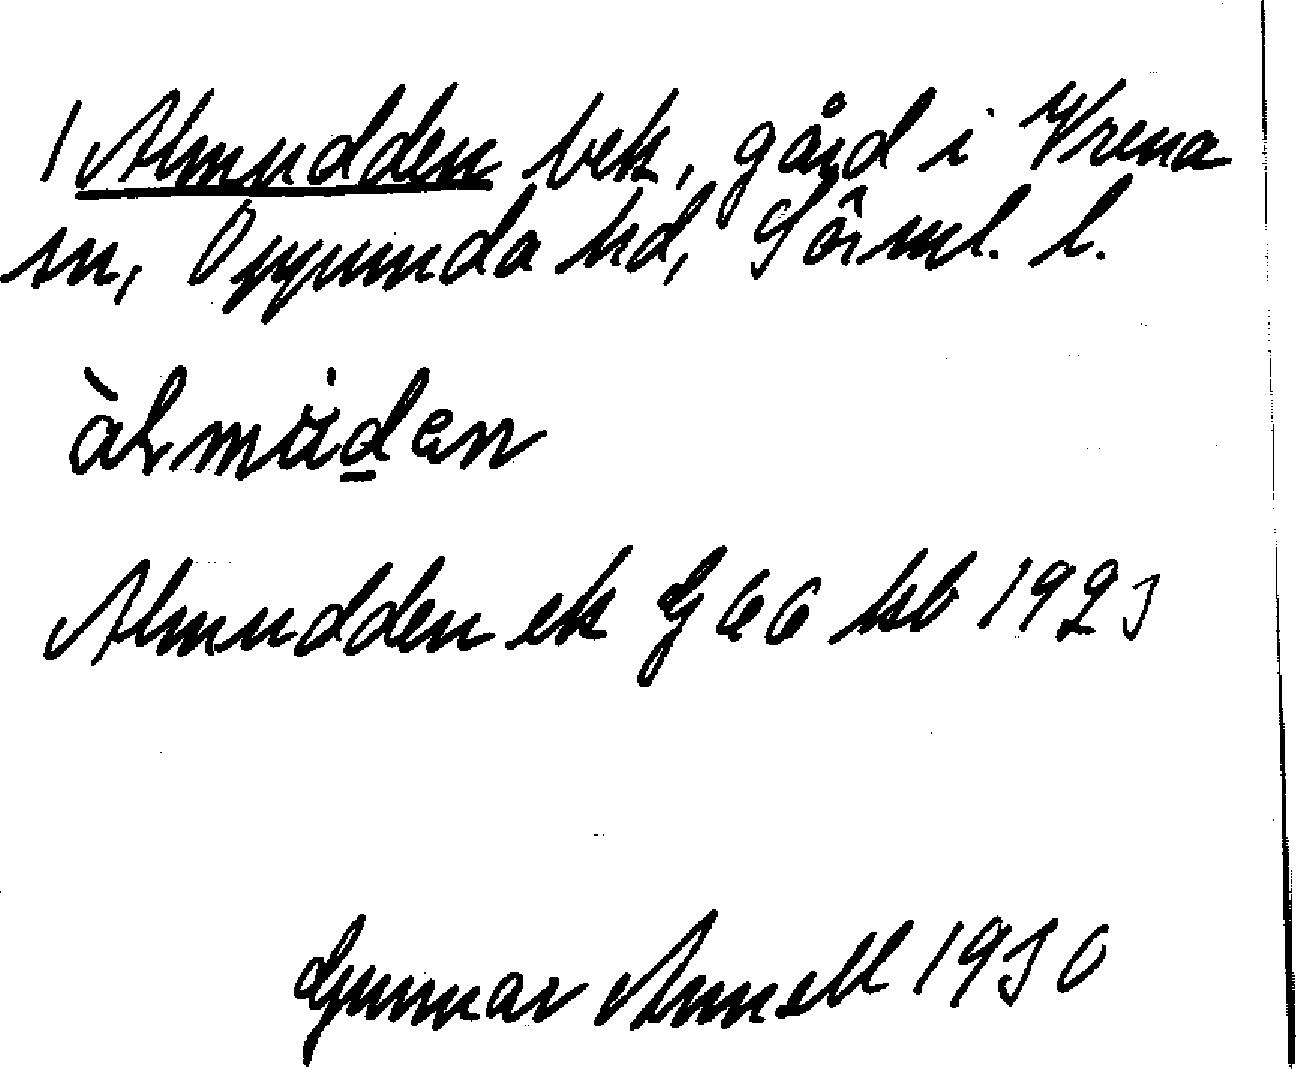 / Almudden bek, gård i Vrena
sn, Oppunda hd, Sörml. l.
àlmuden
Almudden ek G 66 kb 1923
Gunnar Annell 1930